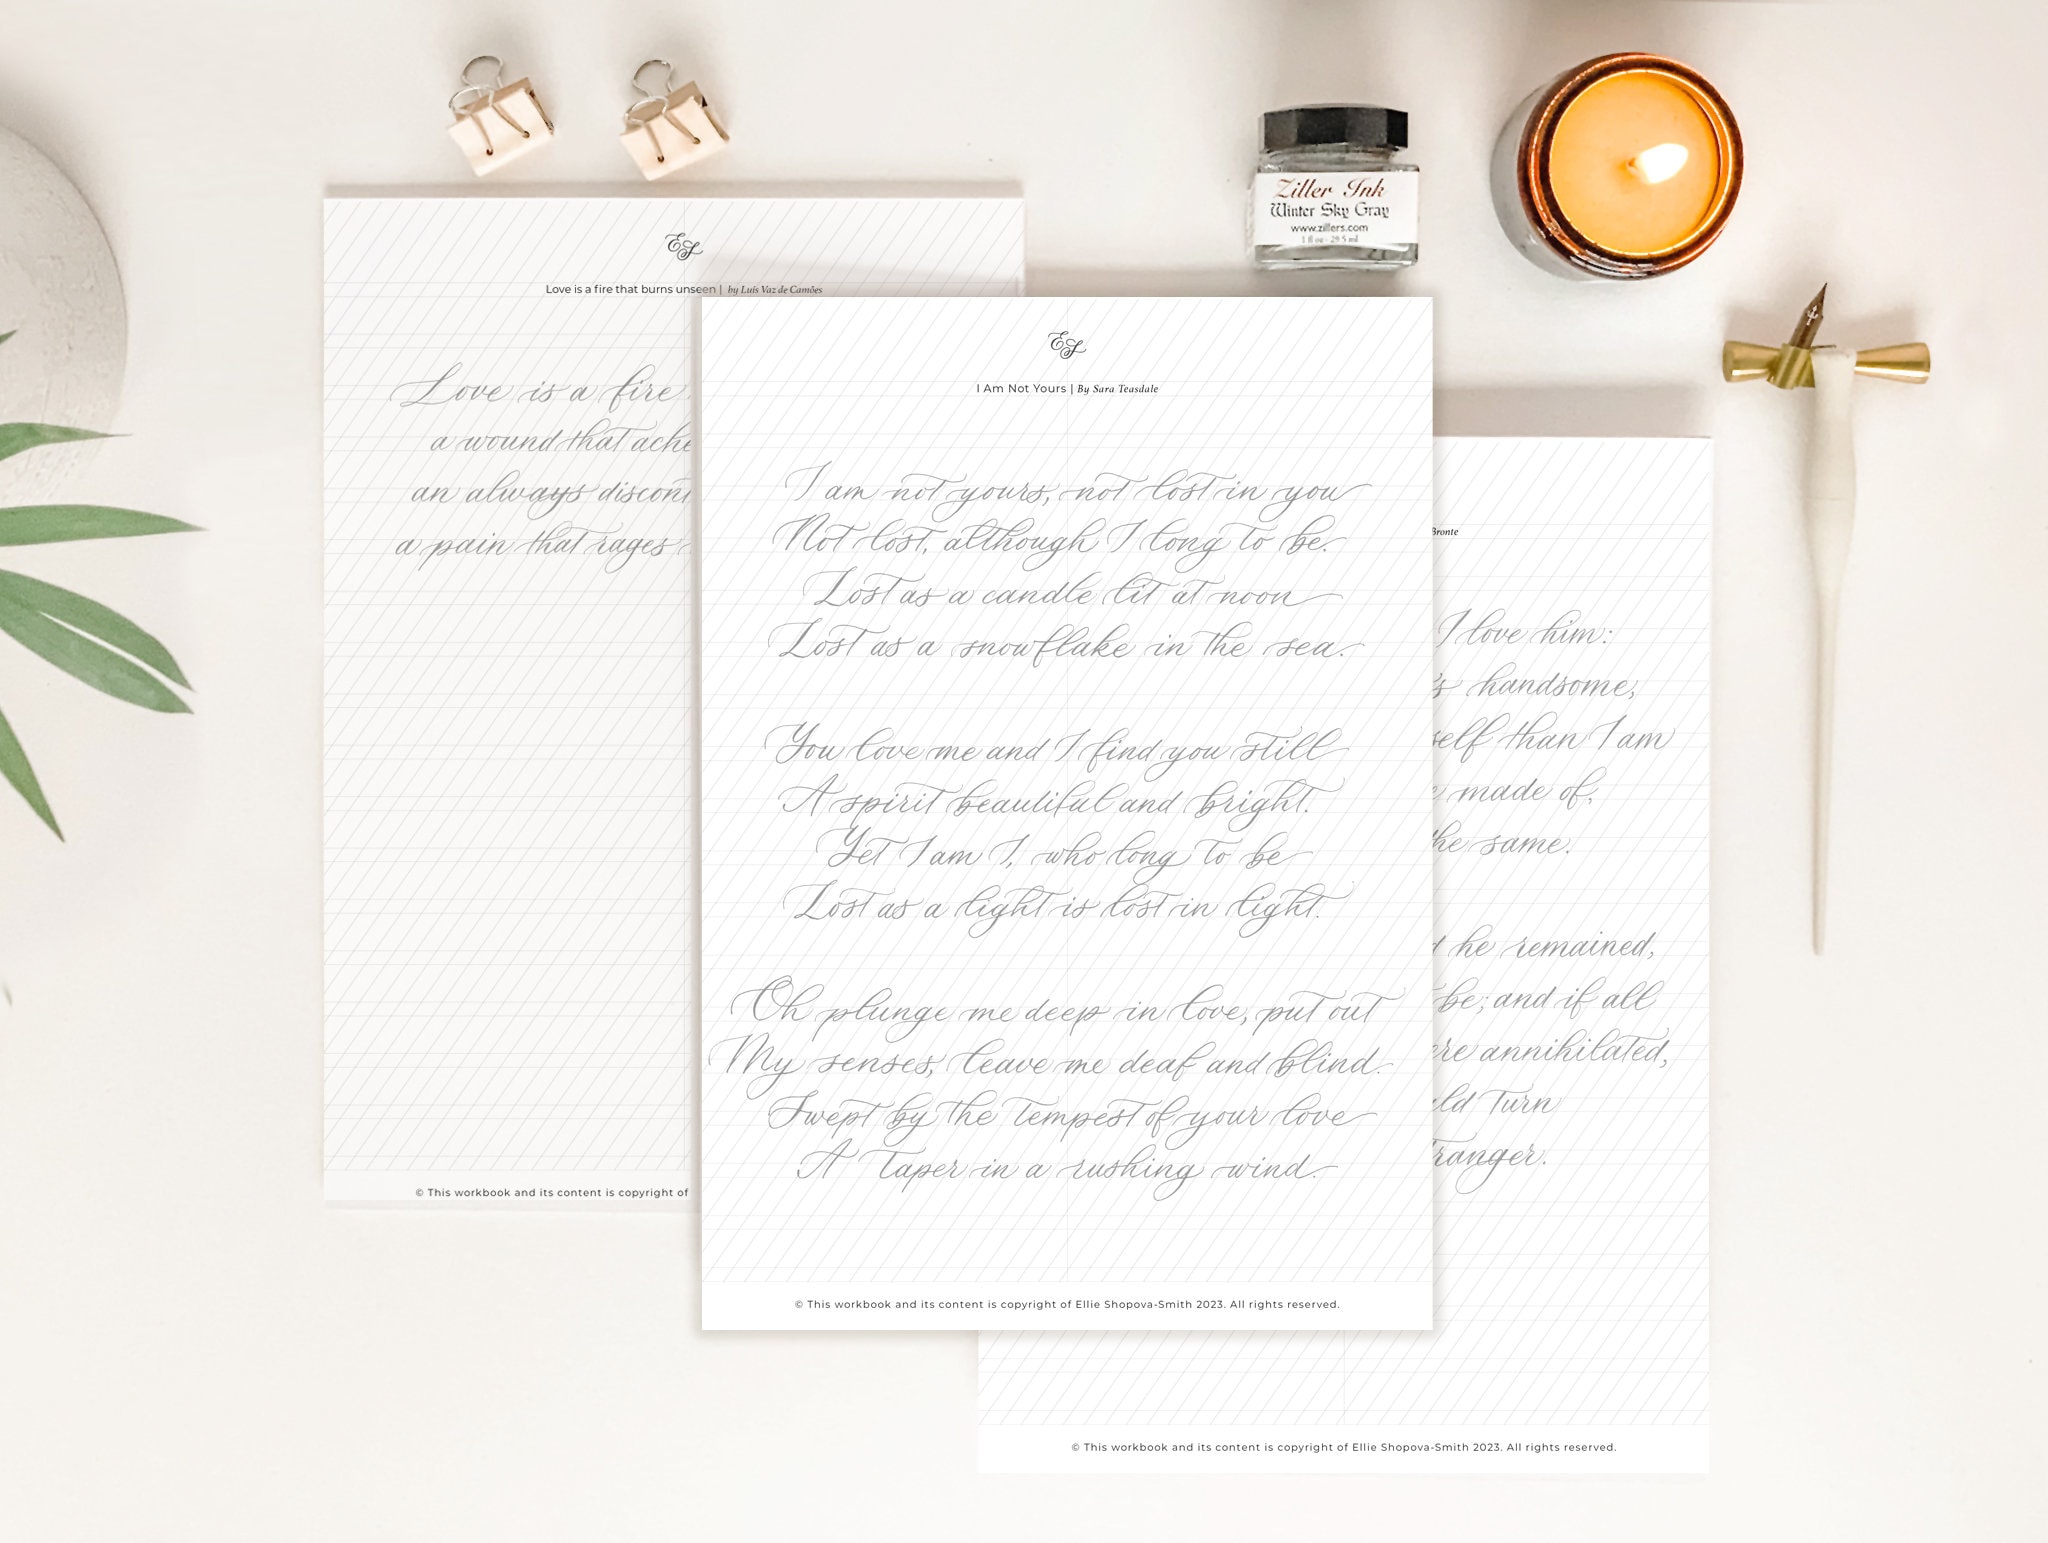 Ziller Ink
Winter Sky Gray
www.zillers.com
1 fl oz - 29.5 ml
ES
Love is a fire that burns unseen | by Luís Vaz de Camões
Love is a fire
a wound that ache
an always discont
a pain that rages
© This workbook and its content is copyright of
ES
I Am Not Yours | By Sara Teasdale
I am not yours, not lost in you
Not lost, although I long to be.
Lost as a candle lit at noon
Lost as a snowflake in the sea.
You love me and I find you still
A spirit beautiful and bright.
Yet I am I, who long to be
Lost as a light is lost in light.
Oh plunge me deep in love, put out
My senses, leave me deaf and blind.
Swept by the tempest of your love
A taper in a rushing wind.
© This workbook and its content is copyright of Ellie Shopova-Smith 2023. All rights reserved.
Bronte
I love him:
's handsome,
self than I am
made of,
the same.
he remained,
be; and if all
re annihilated,
ld turn
tranger.
© This workbook and its content is copyright of Ellie Shopova-Smith 2023. All rights reserved.